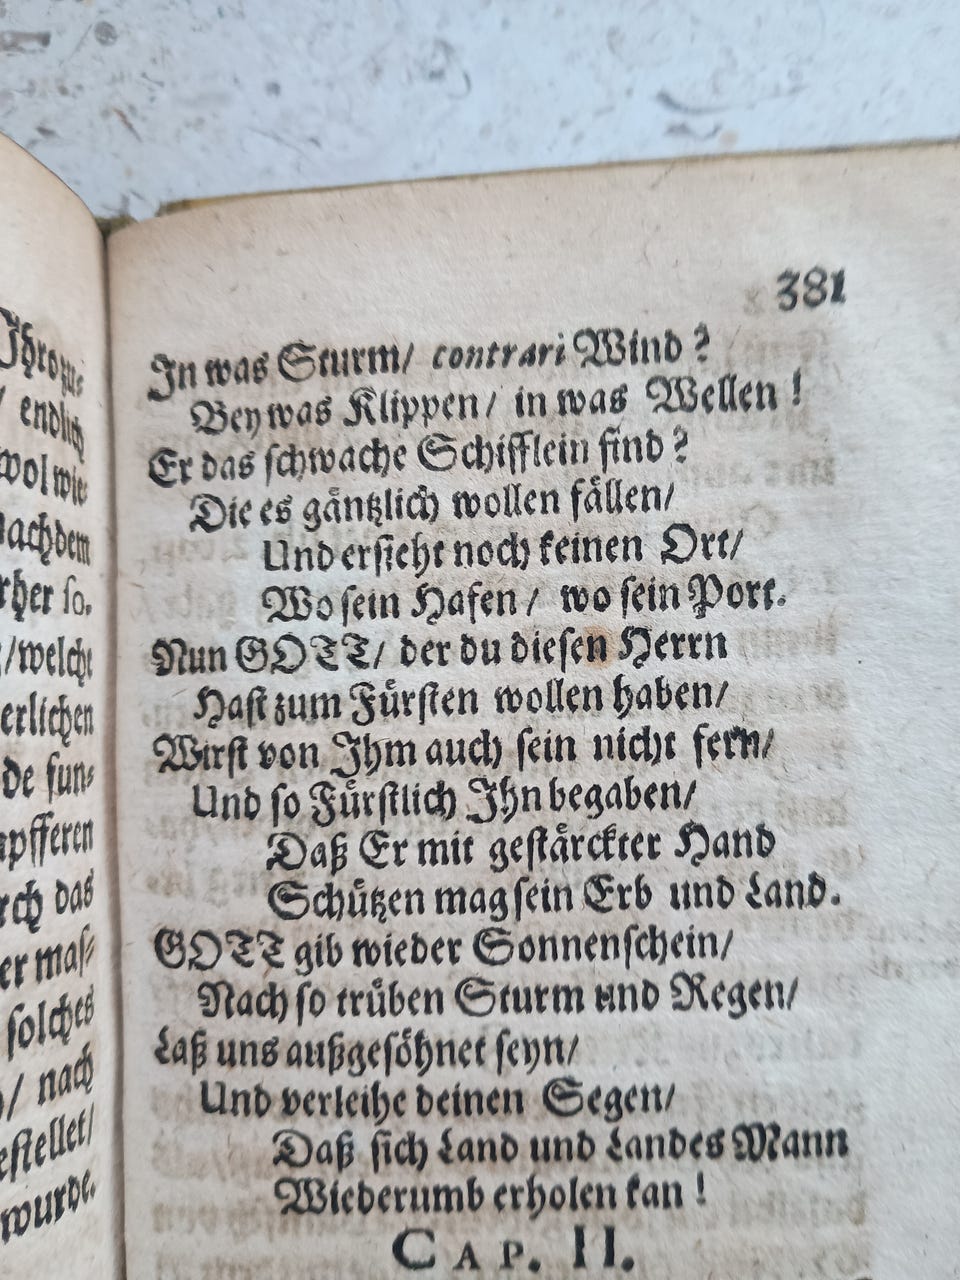 Ihro zu-
/ endlich
wol wie-
nachdem
rher so.
/welche
erlichen
de fun-
apfferen
rch das
er mas-
solches
/ nach
estellet/
wurde.
381
In was Sturm/ contrari Wind?
Bey was Klippen/ in was Wellen!
Er das schwache Schifflein find?
Die es gäntzlich wollen fällen/
Und ersieht noch keinen Ort/
Wo sein Hafen/ wo sein Port.
Nun GOTT/ der du diesen Herrn
Hast zum Fürsten wollen haben/
Wirst von Ihm auch sein nicht fern/
Und so Fürstlich Ihn begaben/
Daß Er mit gestärckter Hand
Schützen mag sein Erb und Land.
GOTT gib wieder Sonnenschein/
Nach so trüben Sturm und Regen/
Laß uns außgesöhnet seyn/
Und verleihe deinen Segen/
Daß sich Land und Landes Mann
Wiederumb erholen kan!
CAP. II.